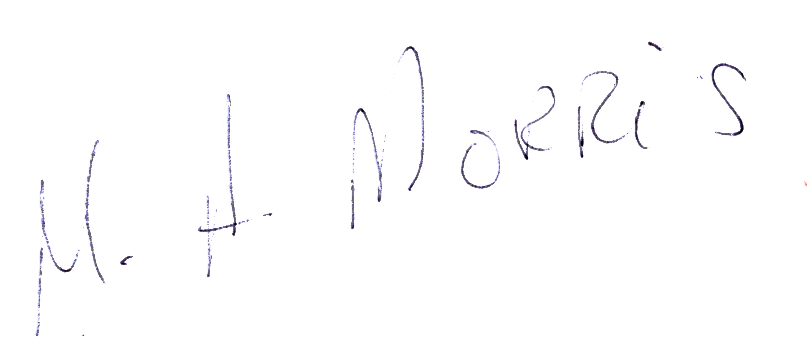 M. H MORRiS